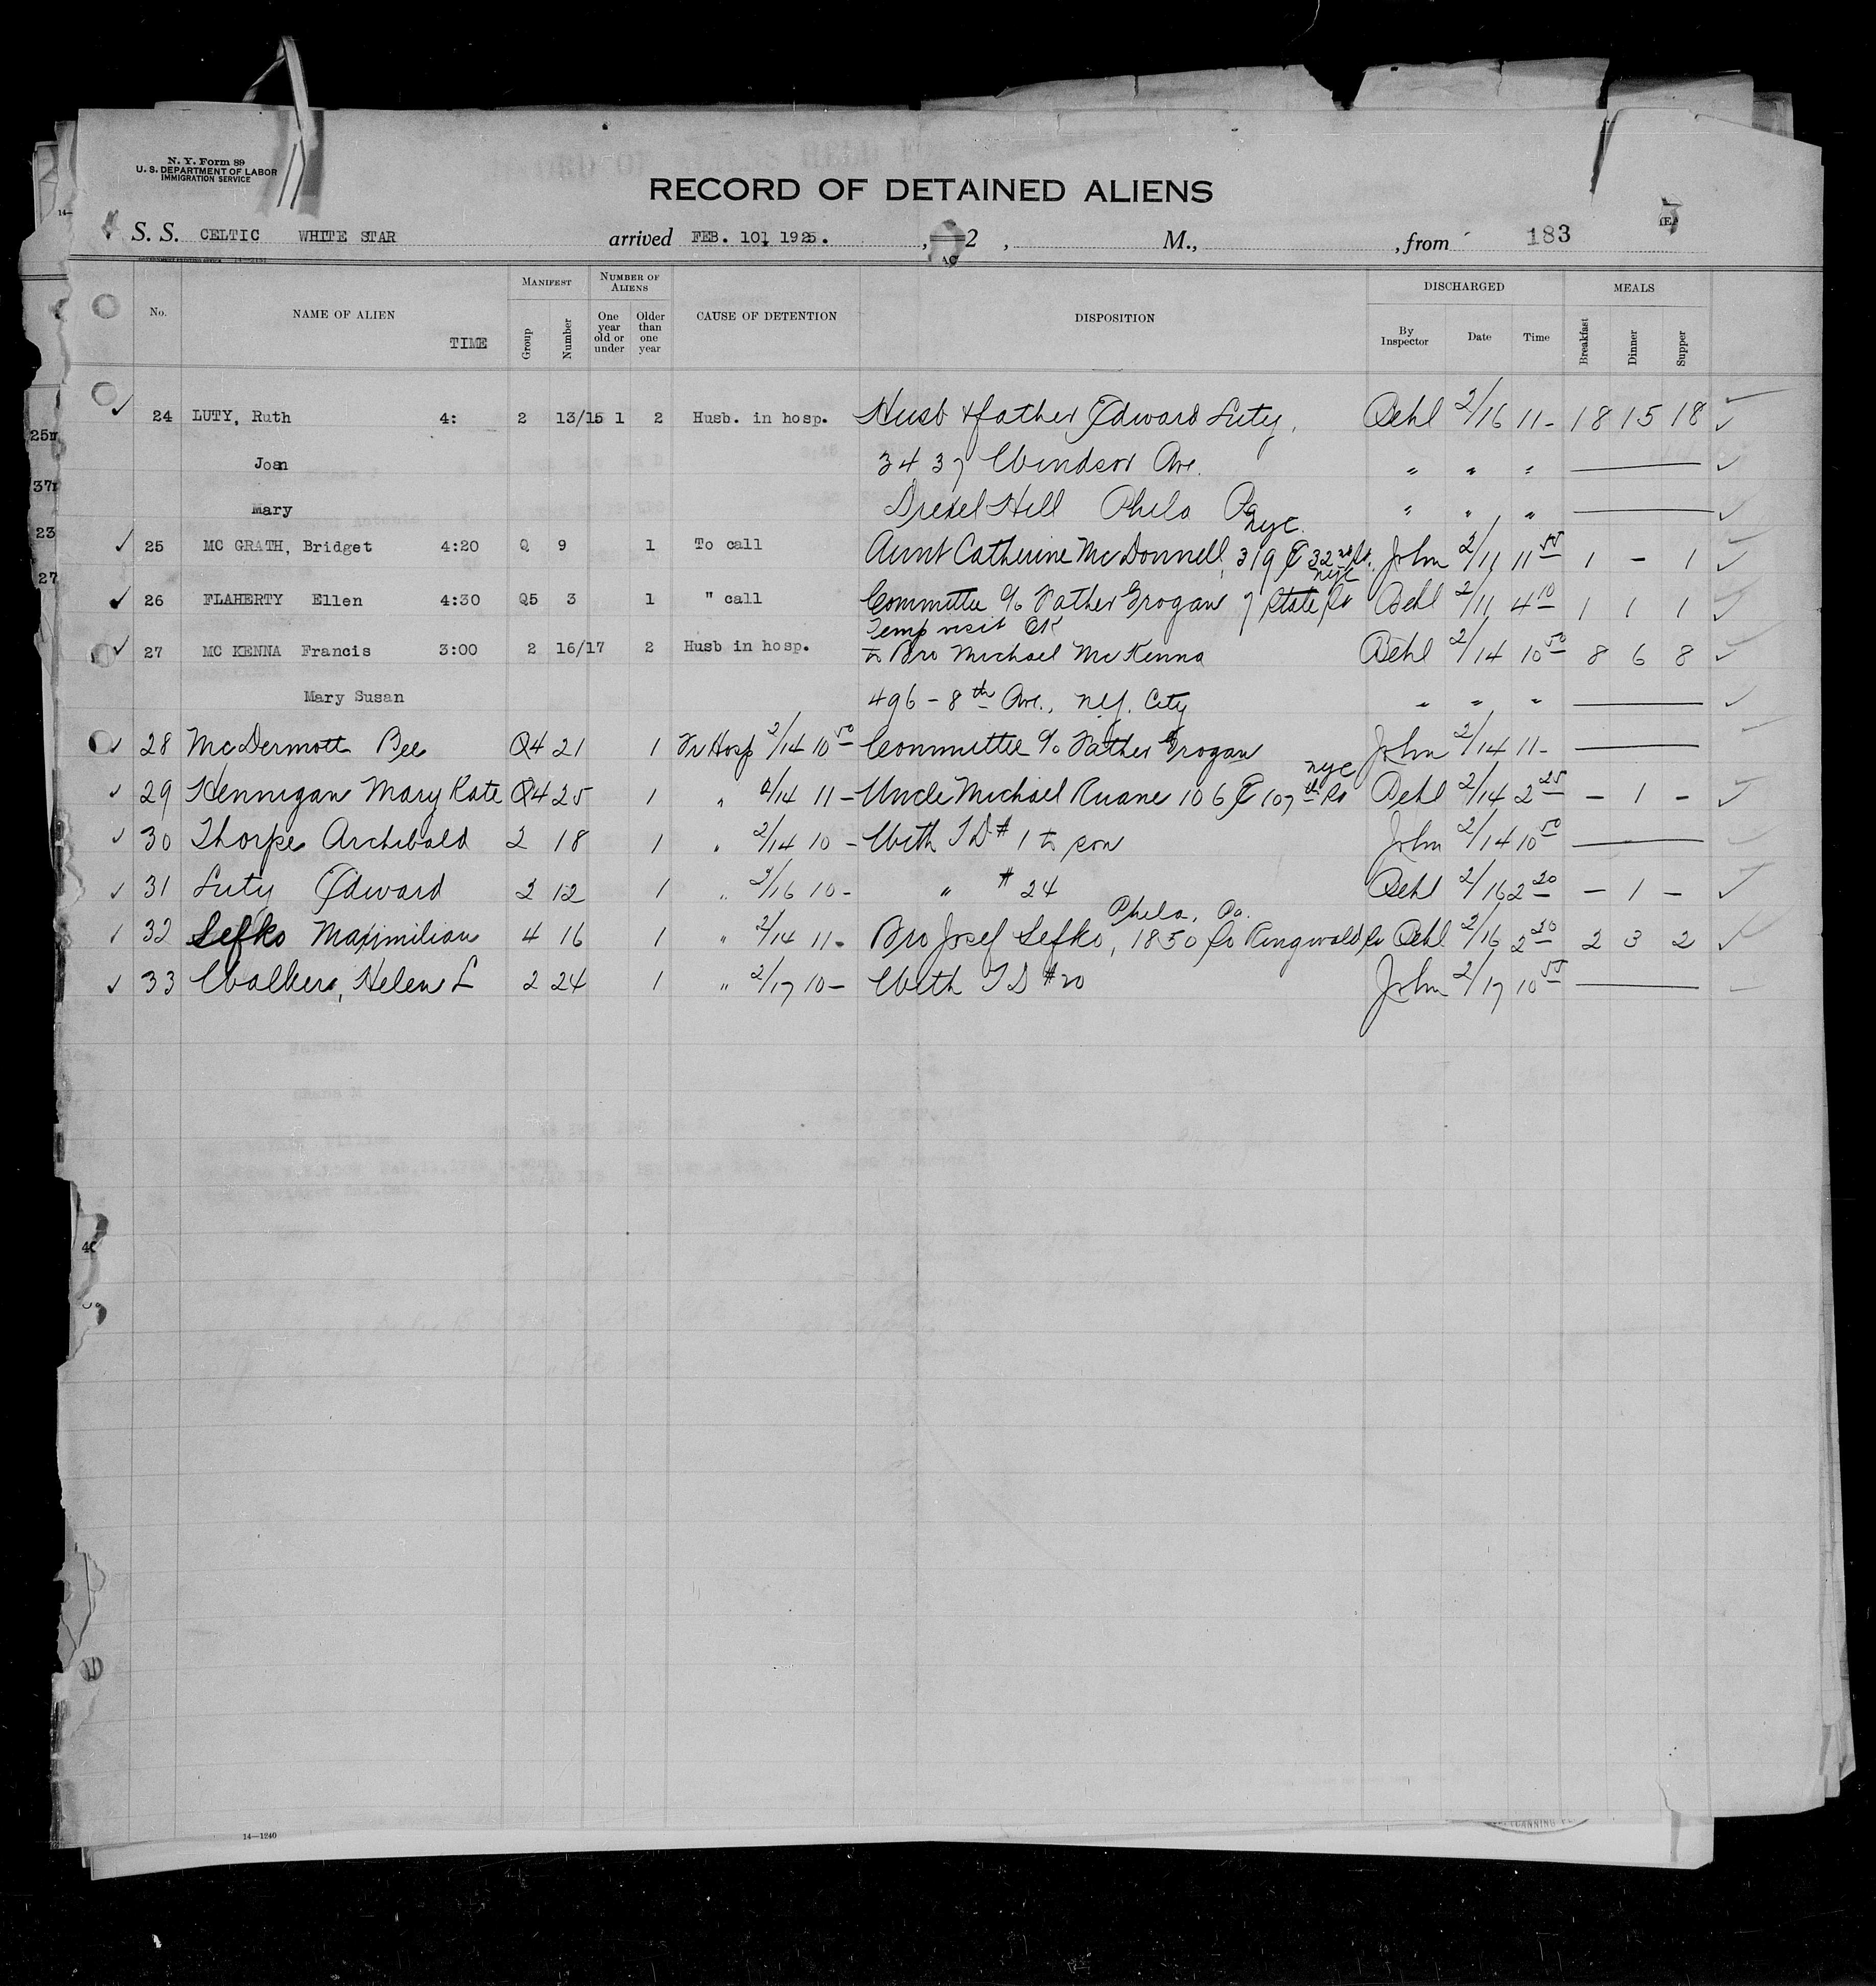 N. Y. Form 89
U. S. DEPARTMENT OF LABOR
IMMIGRATION SERVICE
RECORD OF DETAINED ALIENS
S. S. CELTIC WHITE STAR arrived FEB. 10, 1925. , 2 , M., , from 183
No. NAME OF ALIEN TIME MANIFEST Group Number NUMBER OF ALIENS One year old or under Older than one year CAUSE OF DETENTION DISPOSITION DISCHARGED By Inspector Date Time MEALS Breakfast Dinner Supper
24 LUTY, Ruth 4: 2 13/15 1 2 Husb. in hosp. Husb & father Edward Luty, 2/16 11- 18 15 18
Joan 3437 Windsor Ave. " " "
Mary Drexel Hill Phila Pa " " "
NYC
25 MC GRATH, Bridget 4:20 Q 9 1 To call Aunt Catherine McDonnell, 319 E 32nd St. John 2/11 11 55 1 - 1
NYC
26 FLAHERTY Ellen 4:30 Q5 3 1 " call Committee c/o Father Grogan 7 State St 2/11 4 10 1 1 1
Temp visit OK
27 MC KENNA Francis 3:00 2 16/17 2 Husb in hosp. to Bro Michael McKenna 2/14 10 50 8 6 8
Mary Susan 496 - 8th Ave., N.Y. City " " "
28 McDermott Bee Q4 21 1 Fr Hosp 2/14 10 50 Committee c/o Father Grogan John 2/14 11-
NYC
29 Hennigan Mary Kate Q4 25 1 " 2/14 11- Uncle Michael Ruane 106 E 107th St 2/14 2 25 - 1 -
30 Thorpe Archibald 2 18 1 " 2/14 10 - With TD #1 to son John 2/14 10 50
31 Luty Edward 2 12 1 " 2/16 10 - " #24 2/16 2 20 - 1 -
Phila, Pa.
32 Lefko Maximilian 4 16 1 " 2/14 11- Bro Josef Lefko, 1850 So Ringwald St 2/16 2 20 2 3 2
33 Walker, Helen L 2 24 1 " 2/17 10- With TD #20 John 2/17 10 55
14—1240